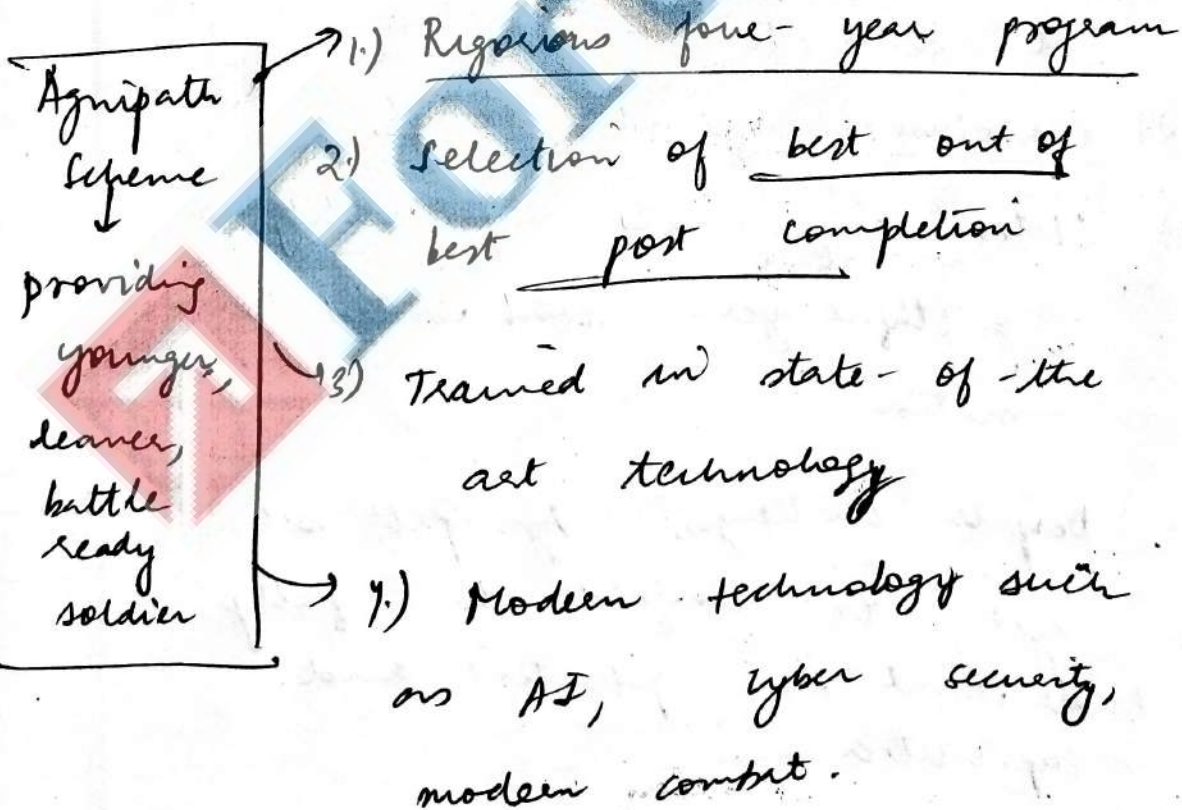 Agnipath
Scheme
providing
younger,
leaner,
battle
ready
soldier
1.) Rigorious four-year program
2.) Selection of best out of
best post completion
3) Trained in state-of-the
art technology
4.) Modern technology such
as AI, cyber security,
modern combat.
For